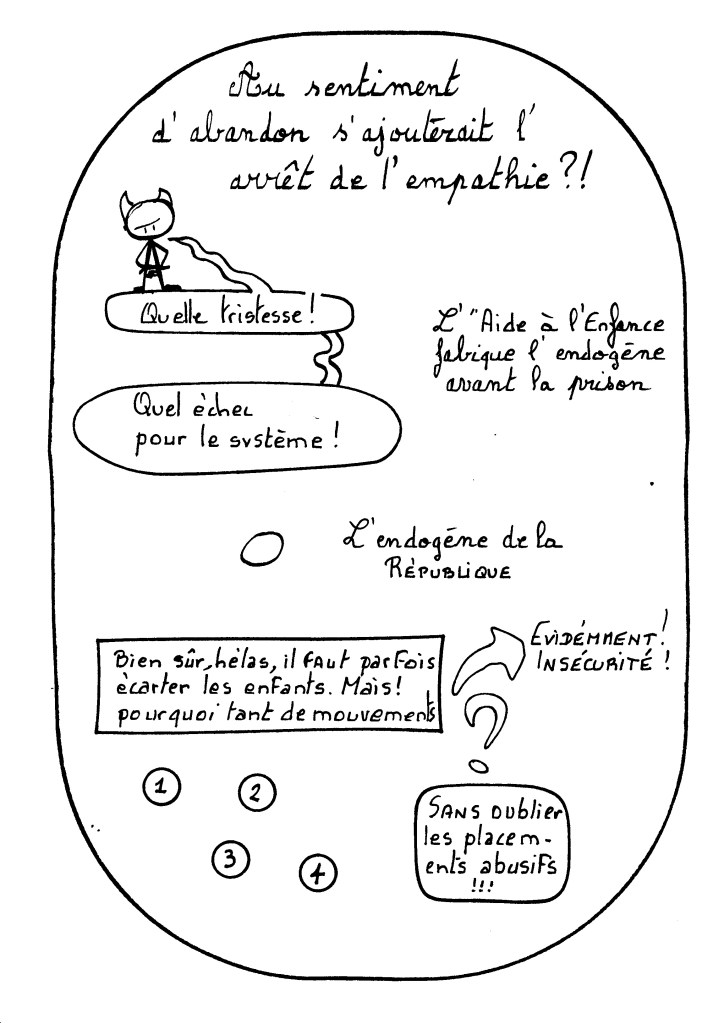 Au sentiment
d'abandon s'ajoutérait l'
arrêt de l'empathie ?!
Quelle tristesse !
L'"Aide à l'Enfance
fabique l'endogène
avant la prison
Quel èchec
pour le système !
L'endogéne de la
RÉPUBLIQUE
EVIDÉMMENT !
INSÉCURITÉ !
Bien sûr, hèlas, il faut parfois
ècarter les enfants. Mais !
pourquoi tant de mouvements
?
1
2
3
4
SANS oublier
les placem-
ents abusifs
!!!